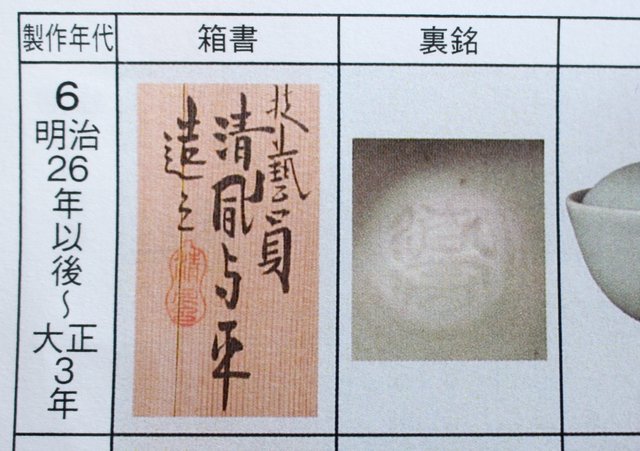 製作年代
箱書
裏銘
6
明治26年以後～大正3年
技藝員
清風与平
造之